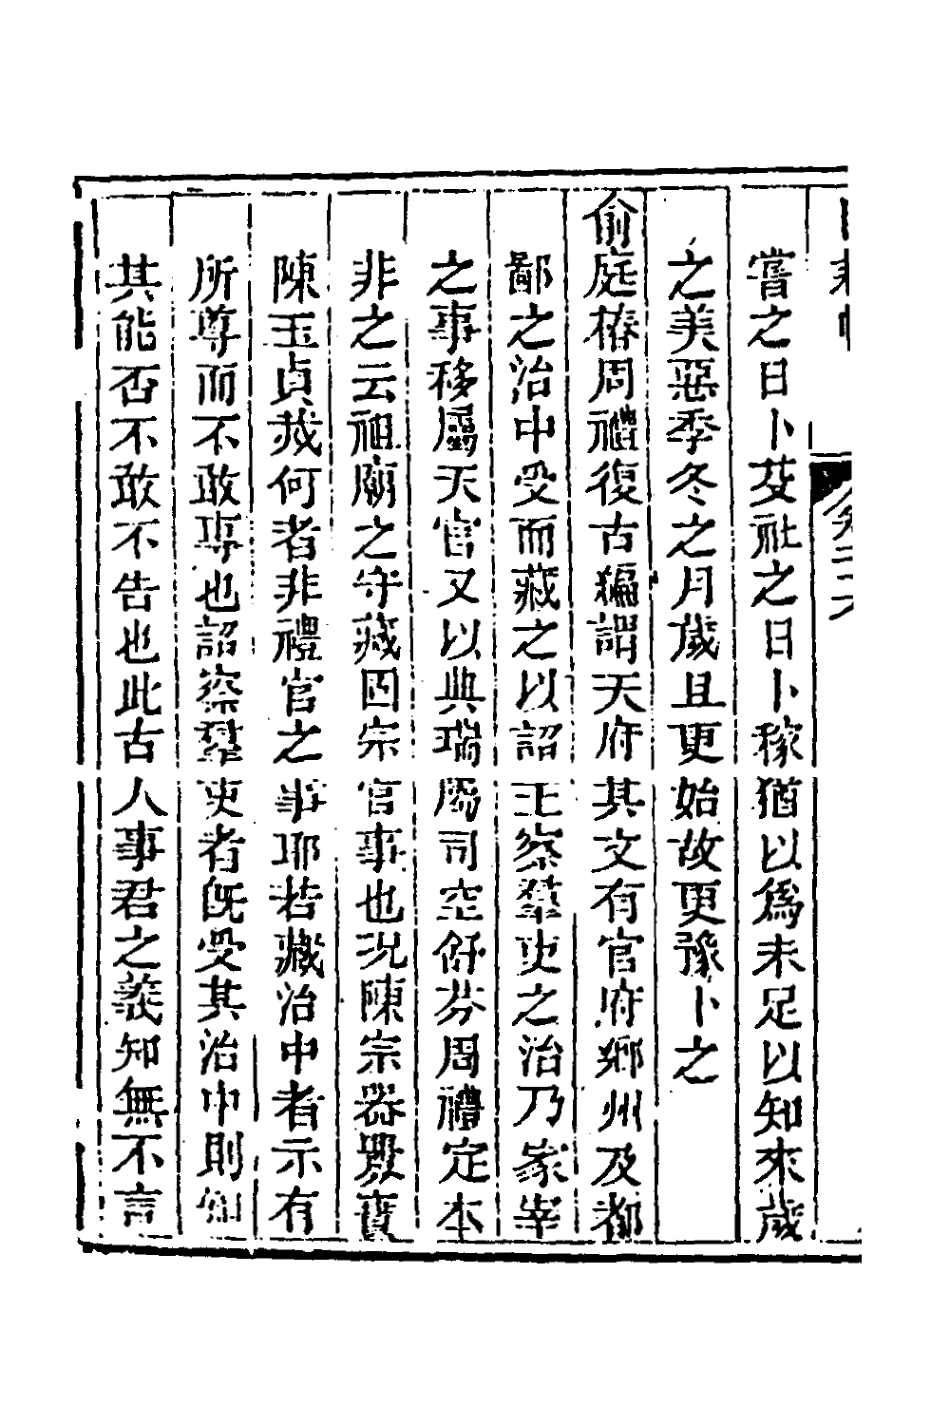 嘗之日卜芟社之日卜稼猶以爲未足以知來歲
之美惡季冬之月歲且更始故更豫卜之
俞庭椿周禮復古編謂天府其文有官府鄉州及都
鄙之治中受而藏之以詔王察羣吏之治乃冢宰
之事移屬天官又以典瑞屬司空舒芬周禮定本
非之云祖廟之守藏固宗官事也况陳宗器斁寶
陳玉貞烖何者非禮官之事耶若藏治中者示有
所尊而不敢專也詔察羣吏者旣受其治中則知
其能否不敢不告也此古人事君之義知無不言